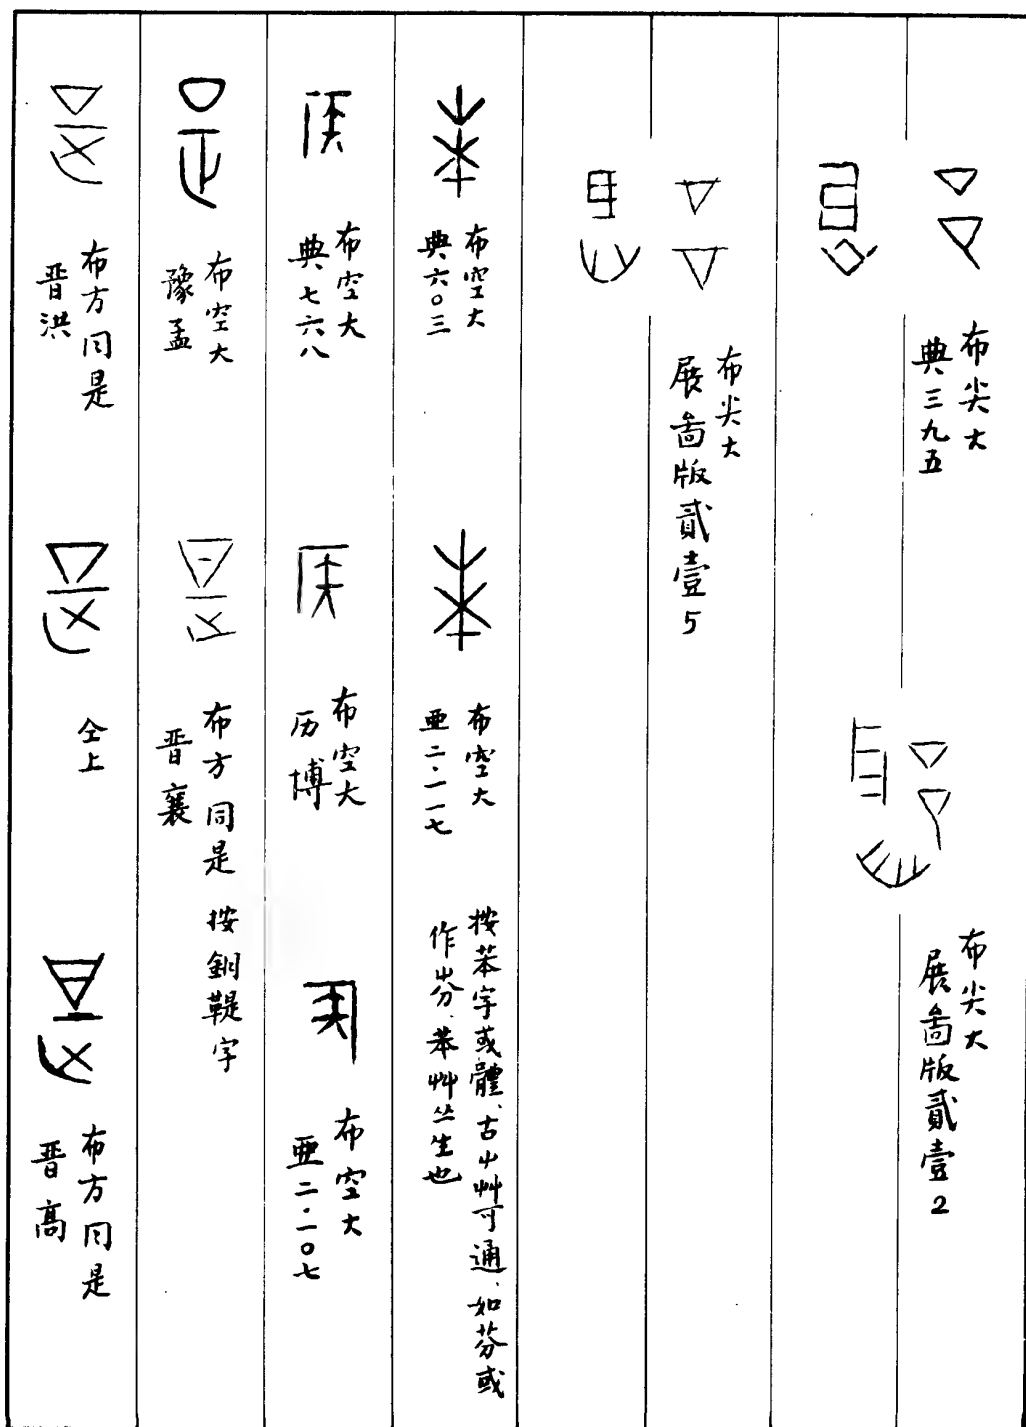 布尖大
典三九五
布尖大
展啚版貳壹2
布尖大
展啚版貳壹5
布空大
典六〇三
布空大
亜二·一一七
按苯字或體、古屮艸可通、如芬或
作岁、苯艸丛生也
布空大
典七六八
布空大
历博
布空大
亜二·一〇七
布空大
豫孟
布方同是
晋襄
按銅鞮字
布方同是
晋洪
仝上
布方同是
晋高